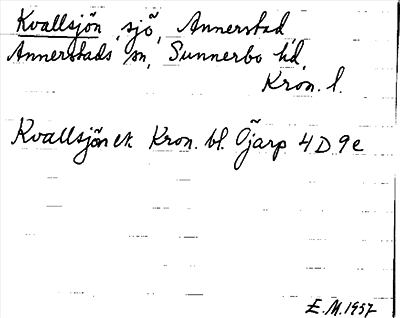 Kvallsjön, sjö, Annerstad,
Annerstads sn, Sunnerbo hd,
Kron. l.
Kvallsjön ek Kron. bl. Öjarp 4 D 9 e
E. M. 1957